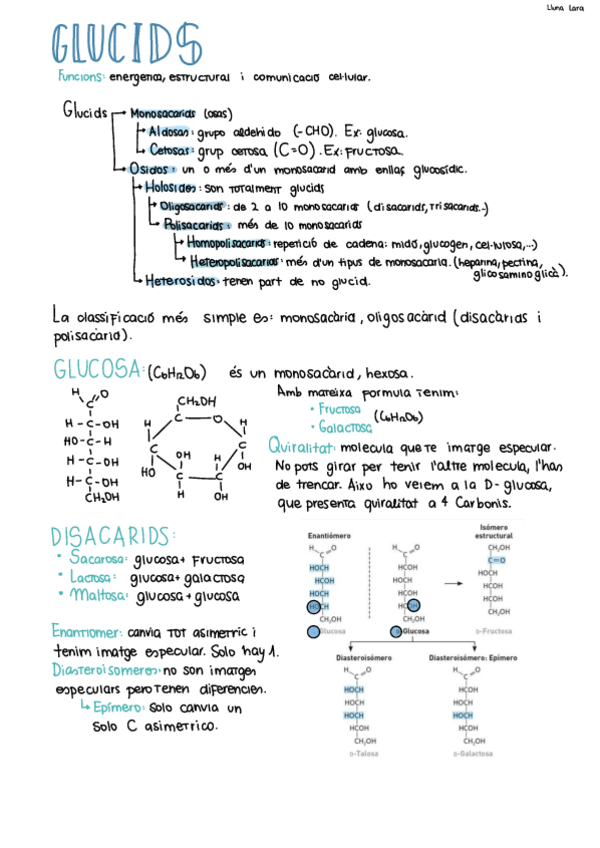 Lluna Lara
GLUCIDS
Funcions: energetica, estructural i comunicació cel·lular.
Glucids
Monosacarids (osas)
Aldosas: grupo aldehido (-CHO). Ex: glucosa.
Cetosas: grup cetosa (C=O). Ex: Fructosa
Osidos: un o més d'un monosacarid amb enllaç glucosídic.
Holosidos: son totalment glucids
Oligosacarids: de 2 a 10 monosacarids (disacarids, trisacarids..)
Polisacarids: més de 10 monosacarids
Homopolisacarids: repetició de cadena: midó, glucogen, cel·lulosa,...)
Heteropolisacarids: més d'un tipus de monosacaria. (heparina, pectina,
glicosaminoglicà).
Heterosidos: tenen part de no glucid.
La classificació més simple es: monosacària, oligosacàrid (disacàrids i
polisacàrid).
GLUCOSA: (C6H12O6) és un monosacàrid, hexosa.
H O
C
H-C-OH
HO-C-H
H-C-OH
H-C-OH
CH2OH
CH2OH
C O
H H
C C
OH H
HO C C OH
H OH
Amb mateixa formula tenim:
• Fructosa
(C6H12O6)
• Galactosa
Quiralitat: molecula que te imarge especular.
No pots girar per tenir l'altre molecula, l'han
de trencar. Aixo ho veiem a la D-glucosa,
que presenta quiralitat a 4 Carbonis.
DISACARIDS:
• Sacarosa: glucosa+ Fructosa
• Lactosa: glucosa+ galactosa
• Maltosa: glucosa + glucosa
Enantiomer: canvia tot asimetric i
tenim imatge especular. Solo hay 1.
Diasteroisomeros: no son imarges
especulars pero tenen diferencies.
Epímero: Solo canvia un
Solo C asimetrico.
Enantiómero
H O
C
HOCH
HCOH
HOCH
HOCH
CH2OH
Glucosa
H O
C
HCOH
HOCH
HCOH
HCOH
CH2OH
D-Glucosa
Isómero
estructural
CH2OH
C=O
HOCH
HCOH
HCOH
CH2OH
D-Fructosa
Diasteroisómero
H O
C
HOCH
HOCH
HOCH
HCOH
CH2OH
D-Talosa
Diasteroisómero: Epímero
H O
C
HCOH
HOCH
HOCH
HCOH
CH2OH
D-Galactosa